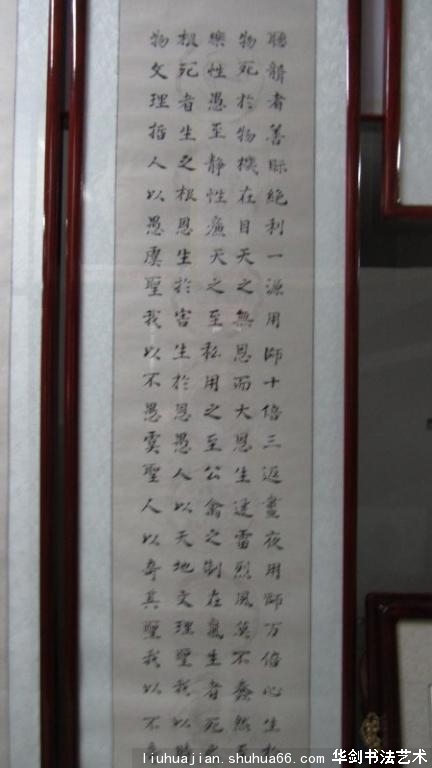 聽瞽者善眎絕利一源用師十倍三返晝夜用師万倍心生於
物死於物機在目天之無恩而大恩生迅雷烈風莫不蠢然至
樂性愚至靜性廉天之至私用之至公禽之制在氣生者死之
根死者生之根恩生於害生於恩愚人以天地文理聖我以時
物文理哲人以愚虞聖我以不愚虞聖人以奇其聖我以不奇
liuhuajian.shuhua66.com 华剑书法艺术